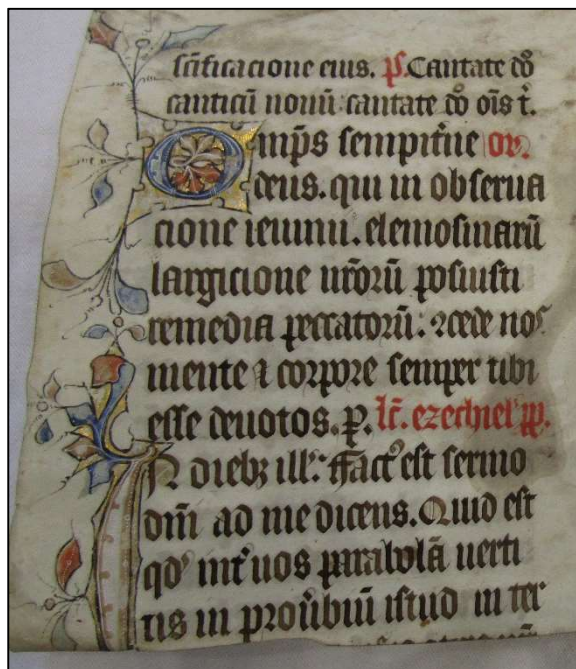 scificacione eius. ps. Cantate dō
canticū nouū: cantate dō oīs t̄.
Omp̄s sempit̄ne or.
deus. qui in obserua
cione ieiunii. elemosinarū
largicione nr̄orū posiusti
remedia peccatorū: ꝯcede nos
mente ⁊ corpore semper tibi
esse deuotos. p. lc̄. ezechiel' pp.
In dieb⁊ ill': ffact' est sermo
dn̄i ad me dicens. Quid est
qd' int' uos parabolā uerti
tis in prou̍biū istud in ter